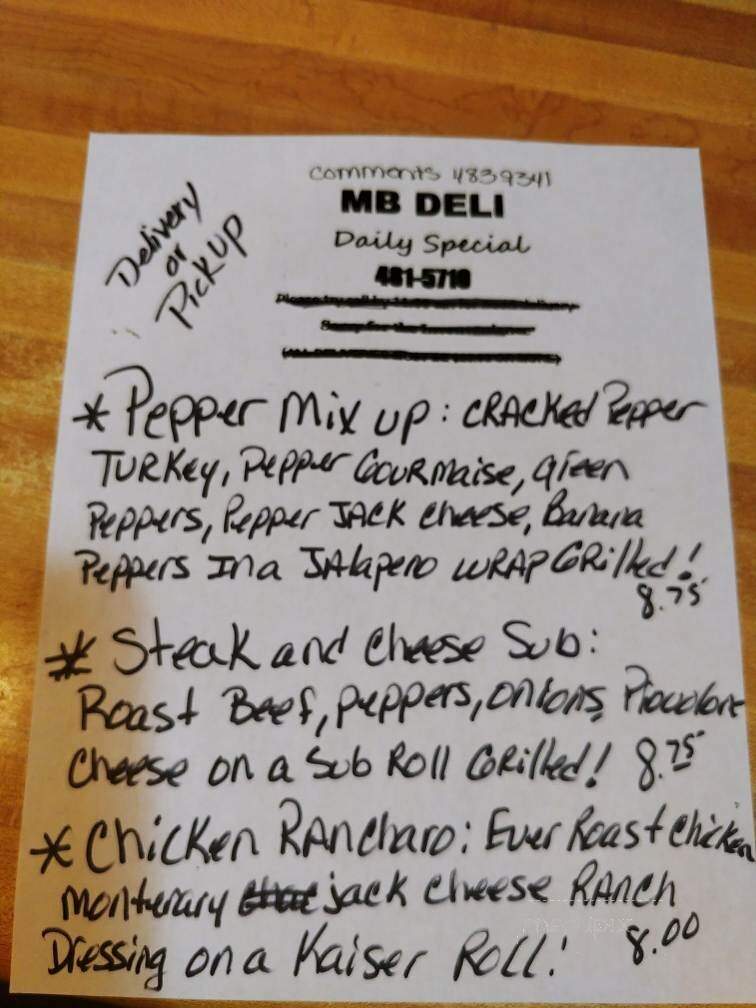 comments 4839341
MB DELI
Daily Special
481-5710
Delivery
or
Pick up
* Pepper Mix up: CRACKed Pepper
TURKey, Pepper Gourmaise, green
Peppers, Pepper JACK cheese, Banana
Peppers In a JAlapeno WRAP GRilled!
8.75
* Steak and Cheese Sub:
Roast Beef, peppers, onions, Provolone
Cheese on a Sub Roll GRilled! 8.75
* Chicken RANcharo: Ever Roast Chicken
Monterary jack cheese RANCH
Dressing on a Kaiser Roll! 8.00